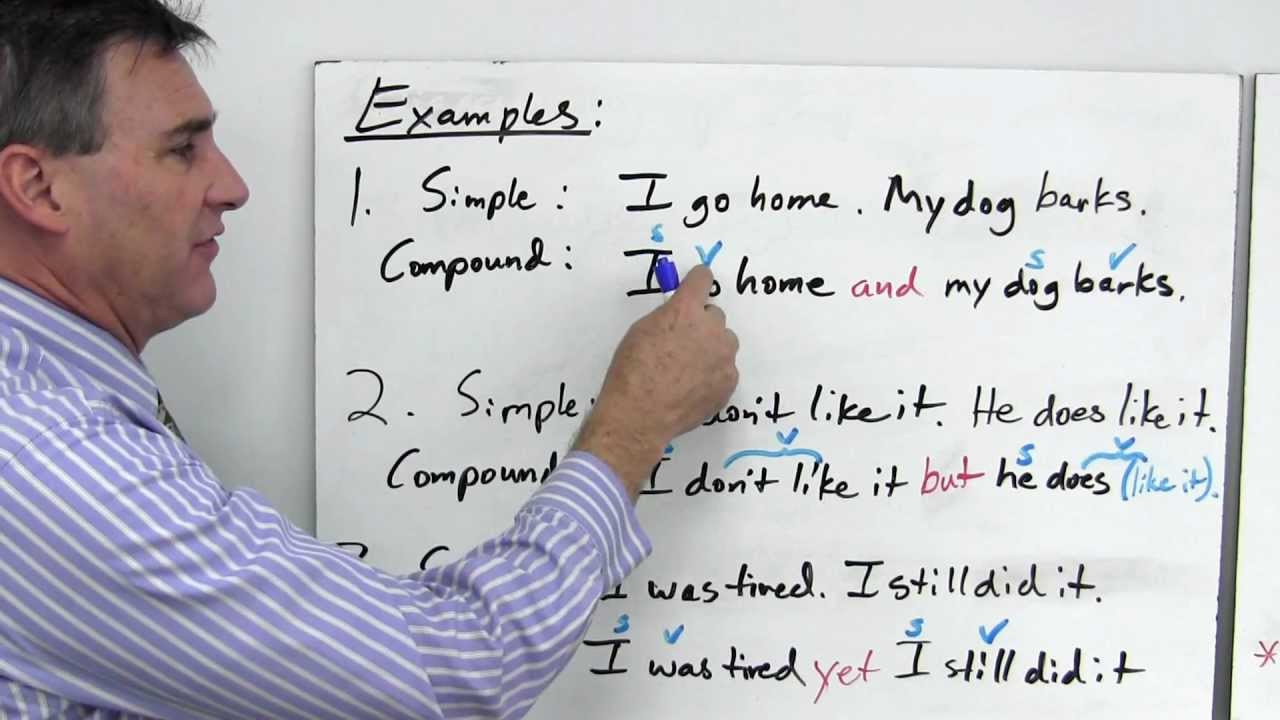 Examples:
1. Simple: I go home. My dog barks.
s v s v
Compound: I home and my dog barks.
2. Simple: don't like it. He does like it.
v s v
Compound I don't like it but he does (like it).
I was tired. I still did it.
s v s v
I was tired yet I still did it
*